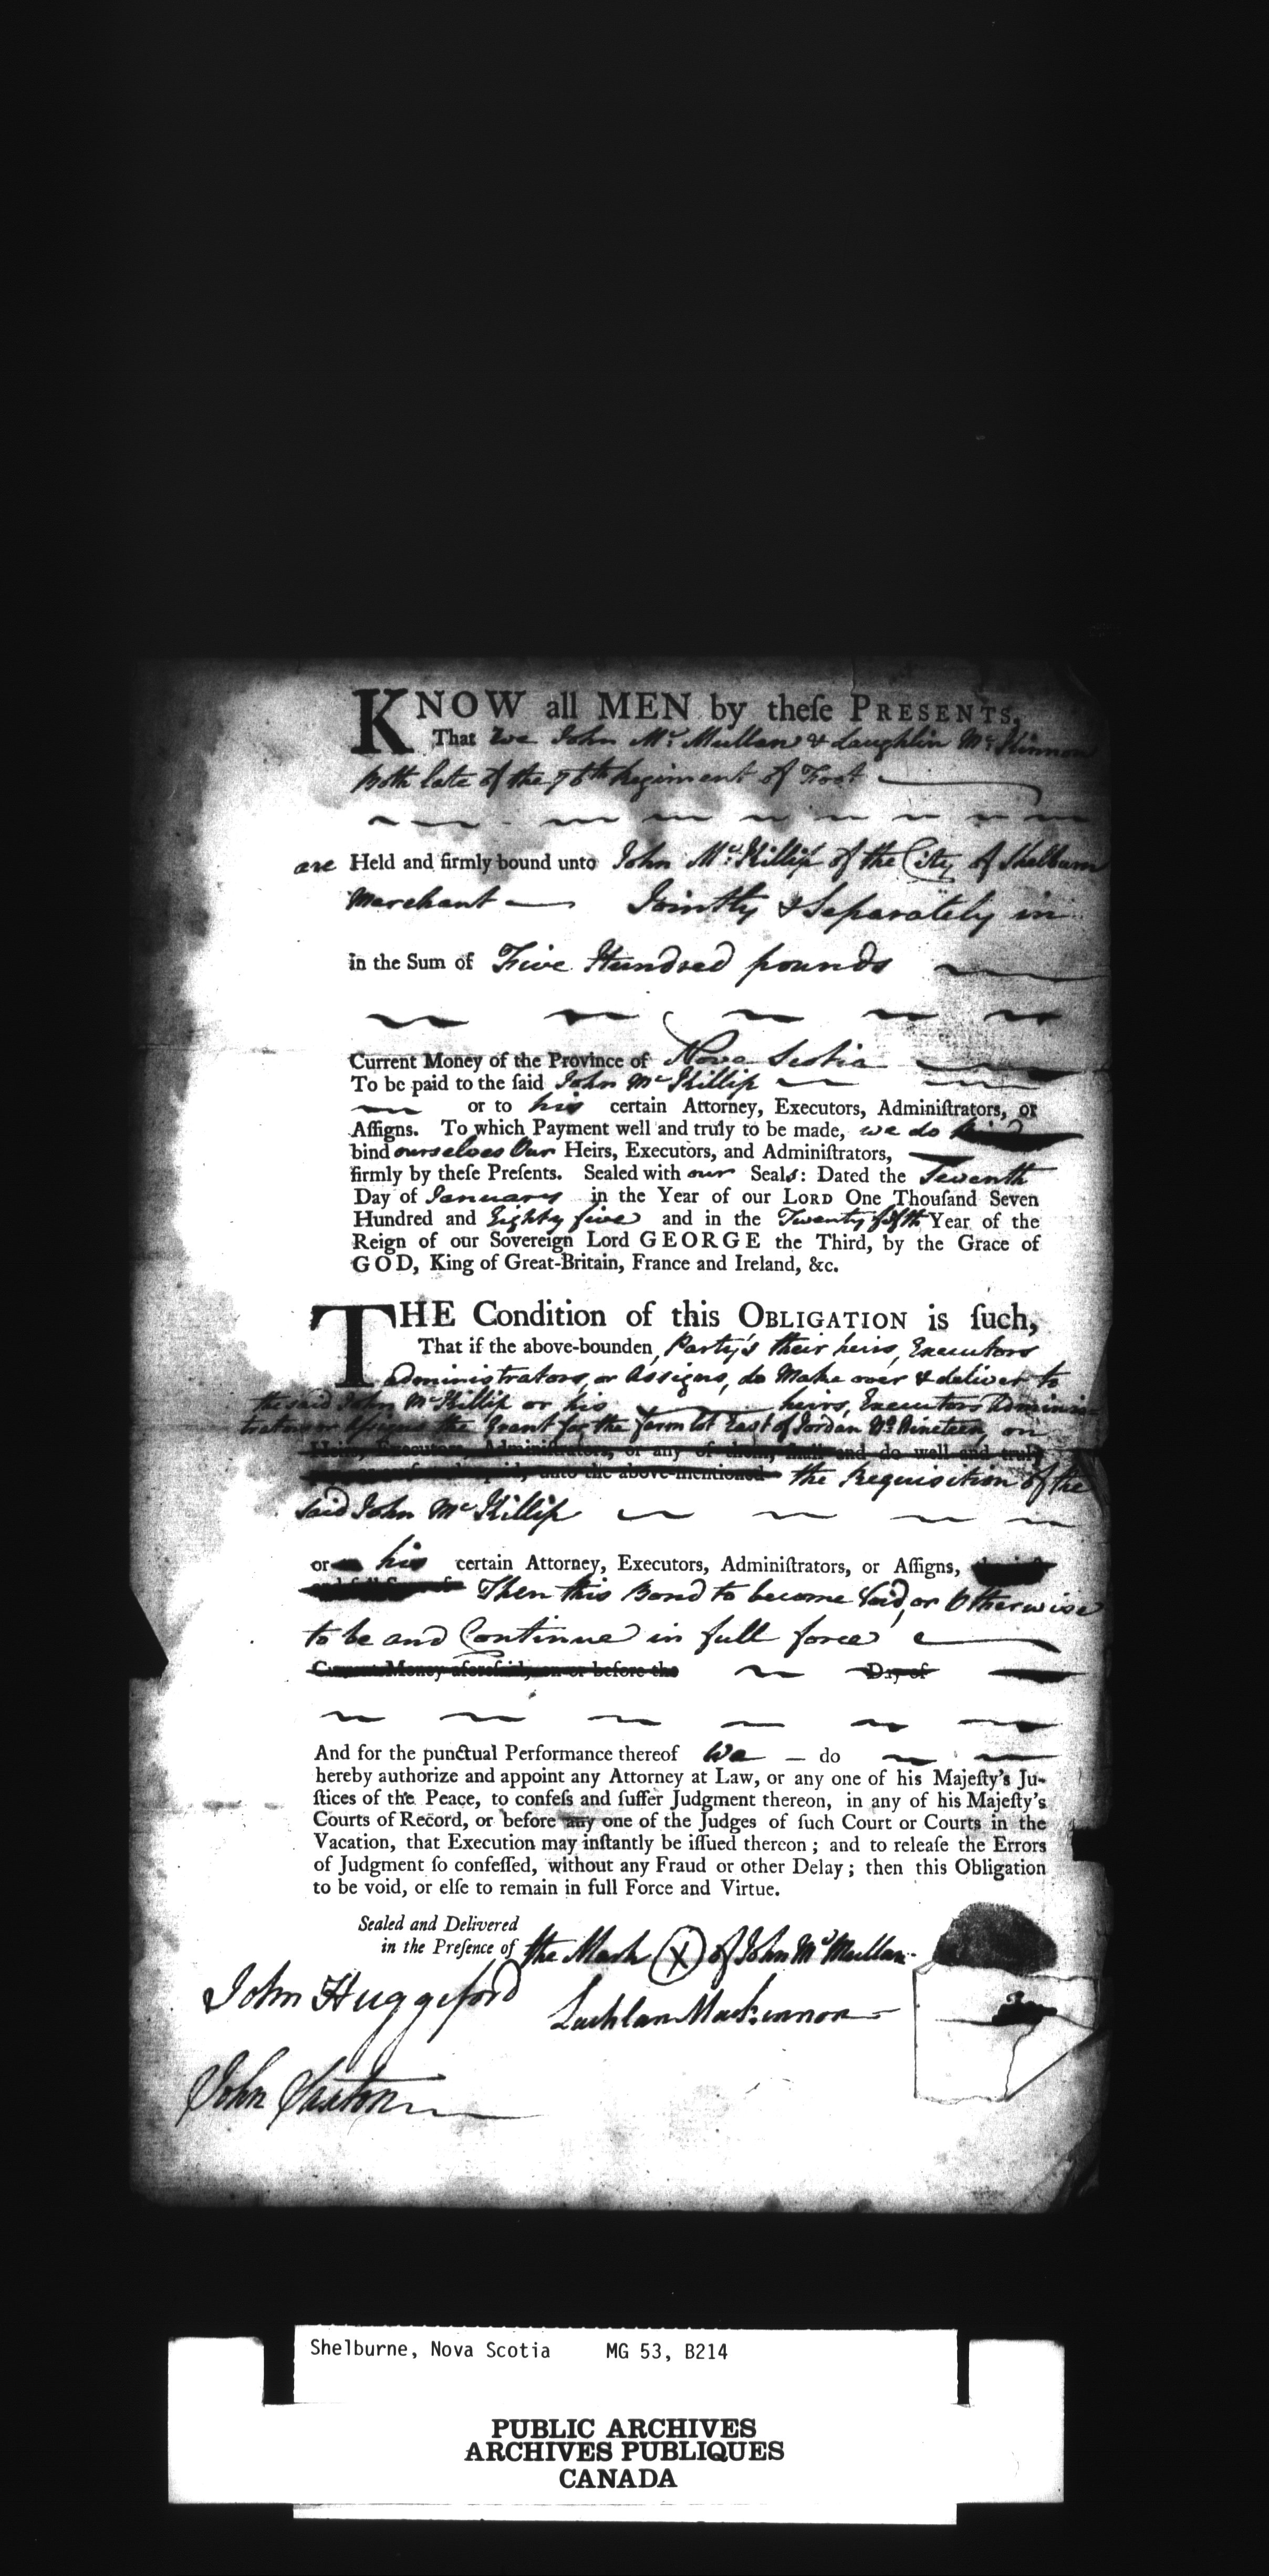 KNOW all MEN by theſe PRESENTS,
That we John Mc. Mullan & Laughlin Mc. Kinnon
Both late of the 76th Regiment of Foot
are Held and firmly bound unto John Mc. Killip of the City of Shelburn
Merchant Jointly & Separately in
in the Sum of Five Hundred pounds
Current Money of the Province of Nova Scotia
To be paid to the ſaid John Mc Killip
or to his certain Attorney, Executors, Adminiſtrators, or
Aſſigns. To which Payment well and truly to be made, we do
bind ourselves Our Heirs, Executors, and Adminiſtrators,
firmly by theſe Preſents. Sealed with our Seals: Dated the Seventh
Day of January in the Year of our LORD One Thouſand Seven
Hundred and Eighty five and in the Twenty fifth Year of the
Reign of our Sovereign Lord GEORGE the Third, by the Grace of
GOD, King of Great-Britain, France and Ireland, &c.
THE Condition of this OBLIGATION is ſuch,
That if the above-bounden, Party's their heirs, Executors
Administrators, or Assigns, do Make over & deliver to
the said John Mc Killip or his heirs, Executors Adminis-
trators or Assigns the Grant for the farm lot East of Jordan No. Nineteen, on
Heirs, Executors, Adminiſtrators, or any of them, ſhall and do well and truly
unto the above-mentioned the Requisition of the
said John Mc Killip
or his certain Attorney, Executors, Adminiſtrators, or Aſſigns,
Then this Bond to become Void, or Otherwise
to be and Continue in full force
Current Money aforeſaid, on or before the Day of
And for the punctual Performance thereof We do
hereby authorize and appoint any Attorney at Law, or any one of his Majeſty's Ju-
ſtices of the Peace, to confeſs and ſuffer Judgment thereon, in any of his Majeſty's
Courts of Record, or before any one of the Judges of ſuch Court or Courts in the
Vacation, that Execution may inſtantly be iſſued thereon; and to releaſe the Errors
of Judgment ſo confeſſed, without any Fraud or other Delay; then this Obligation
to be void, or elſe to remain in full Force and Virtue.
Sealed and Delivered
in the Preſence of the Mark X of John Mc Mullan
John Huggeford Lachlan MacKinnon
John Saxton
Shelburne, Nova Scotia MG 53, B214
PUBLIC ARCHIVES
ARCHIVES PUBLIQUES
CANADA